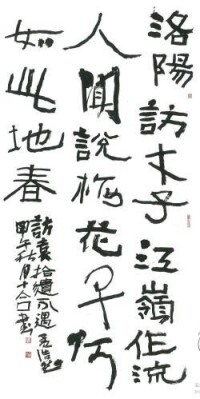 洛陽訪才子江嶺作流
人聞說梅花早何
如此地春
訪袁拾遺不遇孟浩然
甲午秋月書